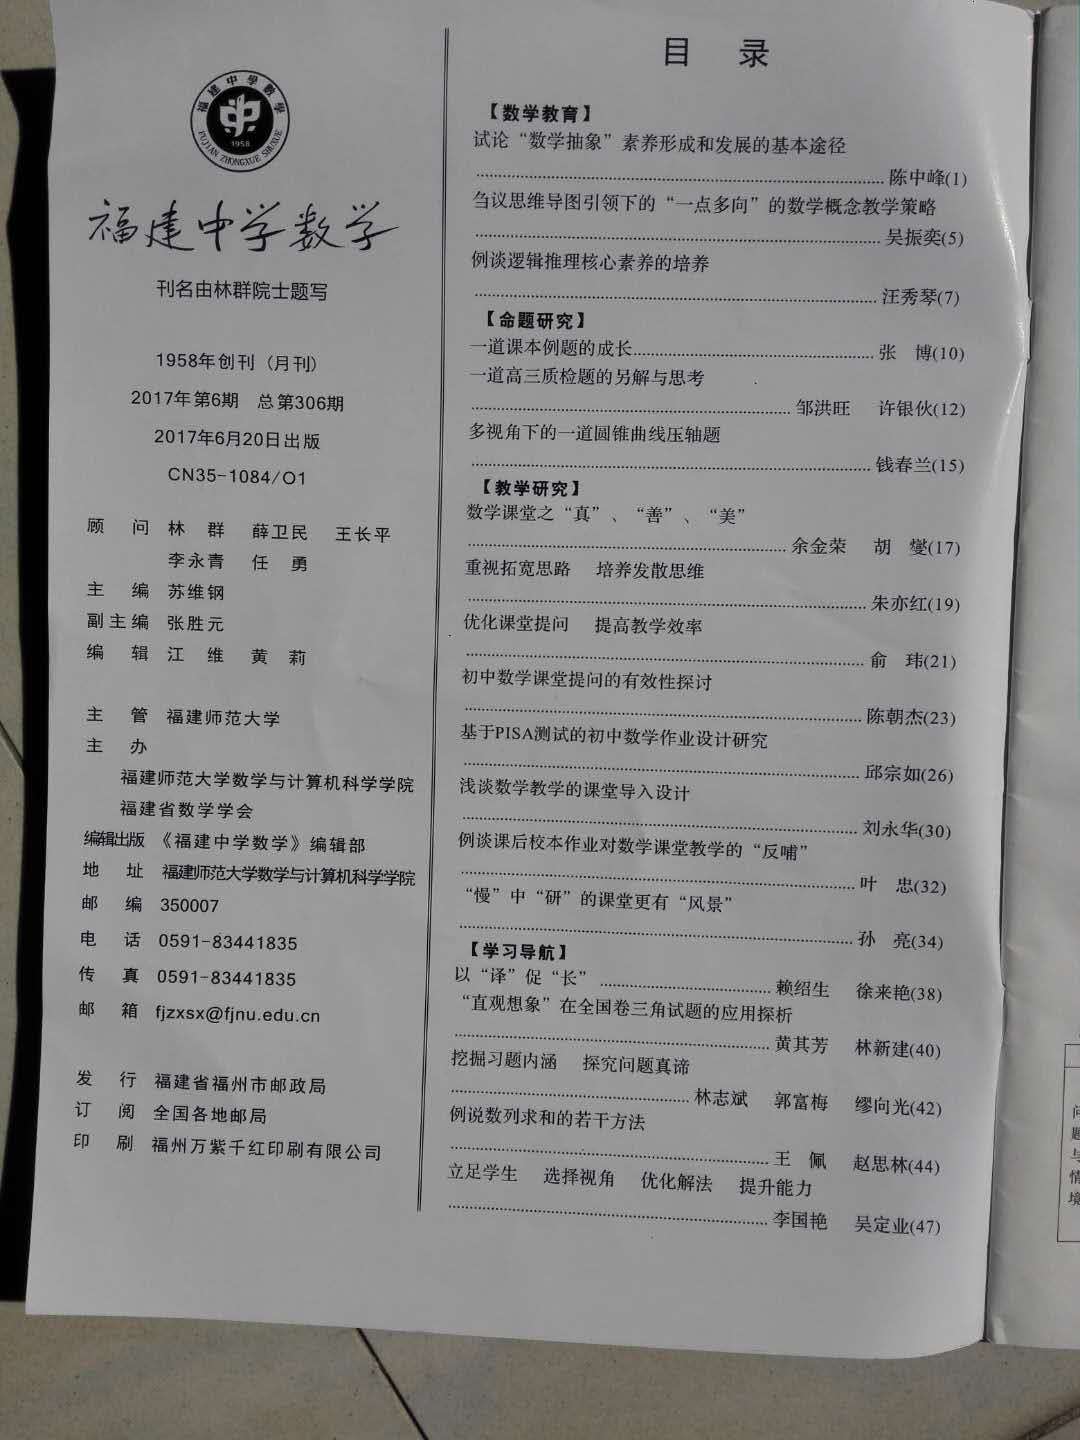 福建中学数学
FUJIAN ZHONGXUE SHUXUE
1958
福建中学数学
刊名由林群院士题写
1958年创刊（月刊）
2017年第6期　总第306期
2017年6月20日出版
CN35-1084/O1
顾　问　林　群　薛卫民　王长平
李永青　任　勇
主　编　苏维钢
副主编　张胜元
编　辑　江　维　黄　莉
主　管　福建师范大学
主　办
福建师范大学数学与计算机科学学院
福建省数学学会
编辑出版　《福建中学数学》编辑部
地　址　福建师范大学数学与计算机科学学院
邮　编　350007
电　话　0591-83441835
传　真　0591-83441835
邮　箱　fjzxsx@fjnu.edu.cn
发　行　福建省福州市邮政局
订　阅　全国各地邮局
印　刷　福州万紫千红印刷有限公司
目　录
【数学教育】
试论“数学抽象”素养形成和发展的基本途径
陈中峰(1)
刍议思维导图引领下的“一点多向”的数学概念教学策略
吴振奕(5)
例谈逻辑推理核心素养的培养
汪秀琴(7)
【命题研究】
一道课本例题的成长 张　博(10)
一道高三质检题的另解与思考
邹洪旺　许银伙(12)
多视角下的一道圆锥曲线压轴题
钱春兰(15)
【教学研究】
数学课堂之“真”、“善”、“美”
余金荣　胡　燮(17)
重视拓宽思路　培养发散思维
朱亦红(19)
优化课堂提问　提高教学效率
俞　玮(21)
初中数学课堂提问的有效性探讨
陈朝杰(23)
基于PISA测试的初中数学作业设计研究
邱宗如(26)
浅谈数学教学的课堂导入设计
刘永华(30)
例谈课后校本作业对数学课堂教学的“反哺”
叶　忠(32)
“慢”中“研”的课堂更有“风景”
孙　亮(34)
【学习导航】
以“译”促“长” 赖绍生　徐来艳(38)
“直观想象”在全国卷三角试题的应用探析
黄其芳　林新建(40)
挖掘习题内涵　探究问题真谛
林志斌　郭富梅　缪向光(42)
例说数列求和的若干方法
王　佩　赵思林(44)
立足学生　选择视角　优化解法　提升能力
李国艳　吴定业(47)
问
题
与
情
境